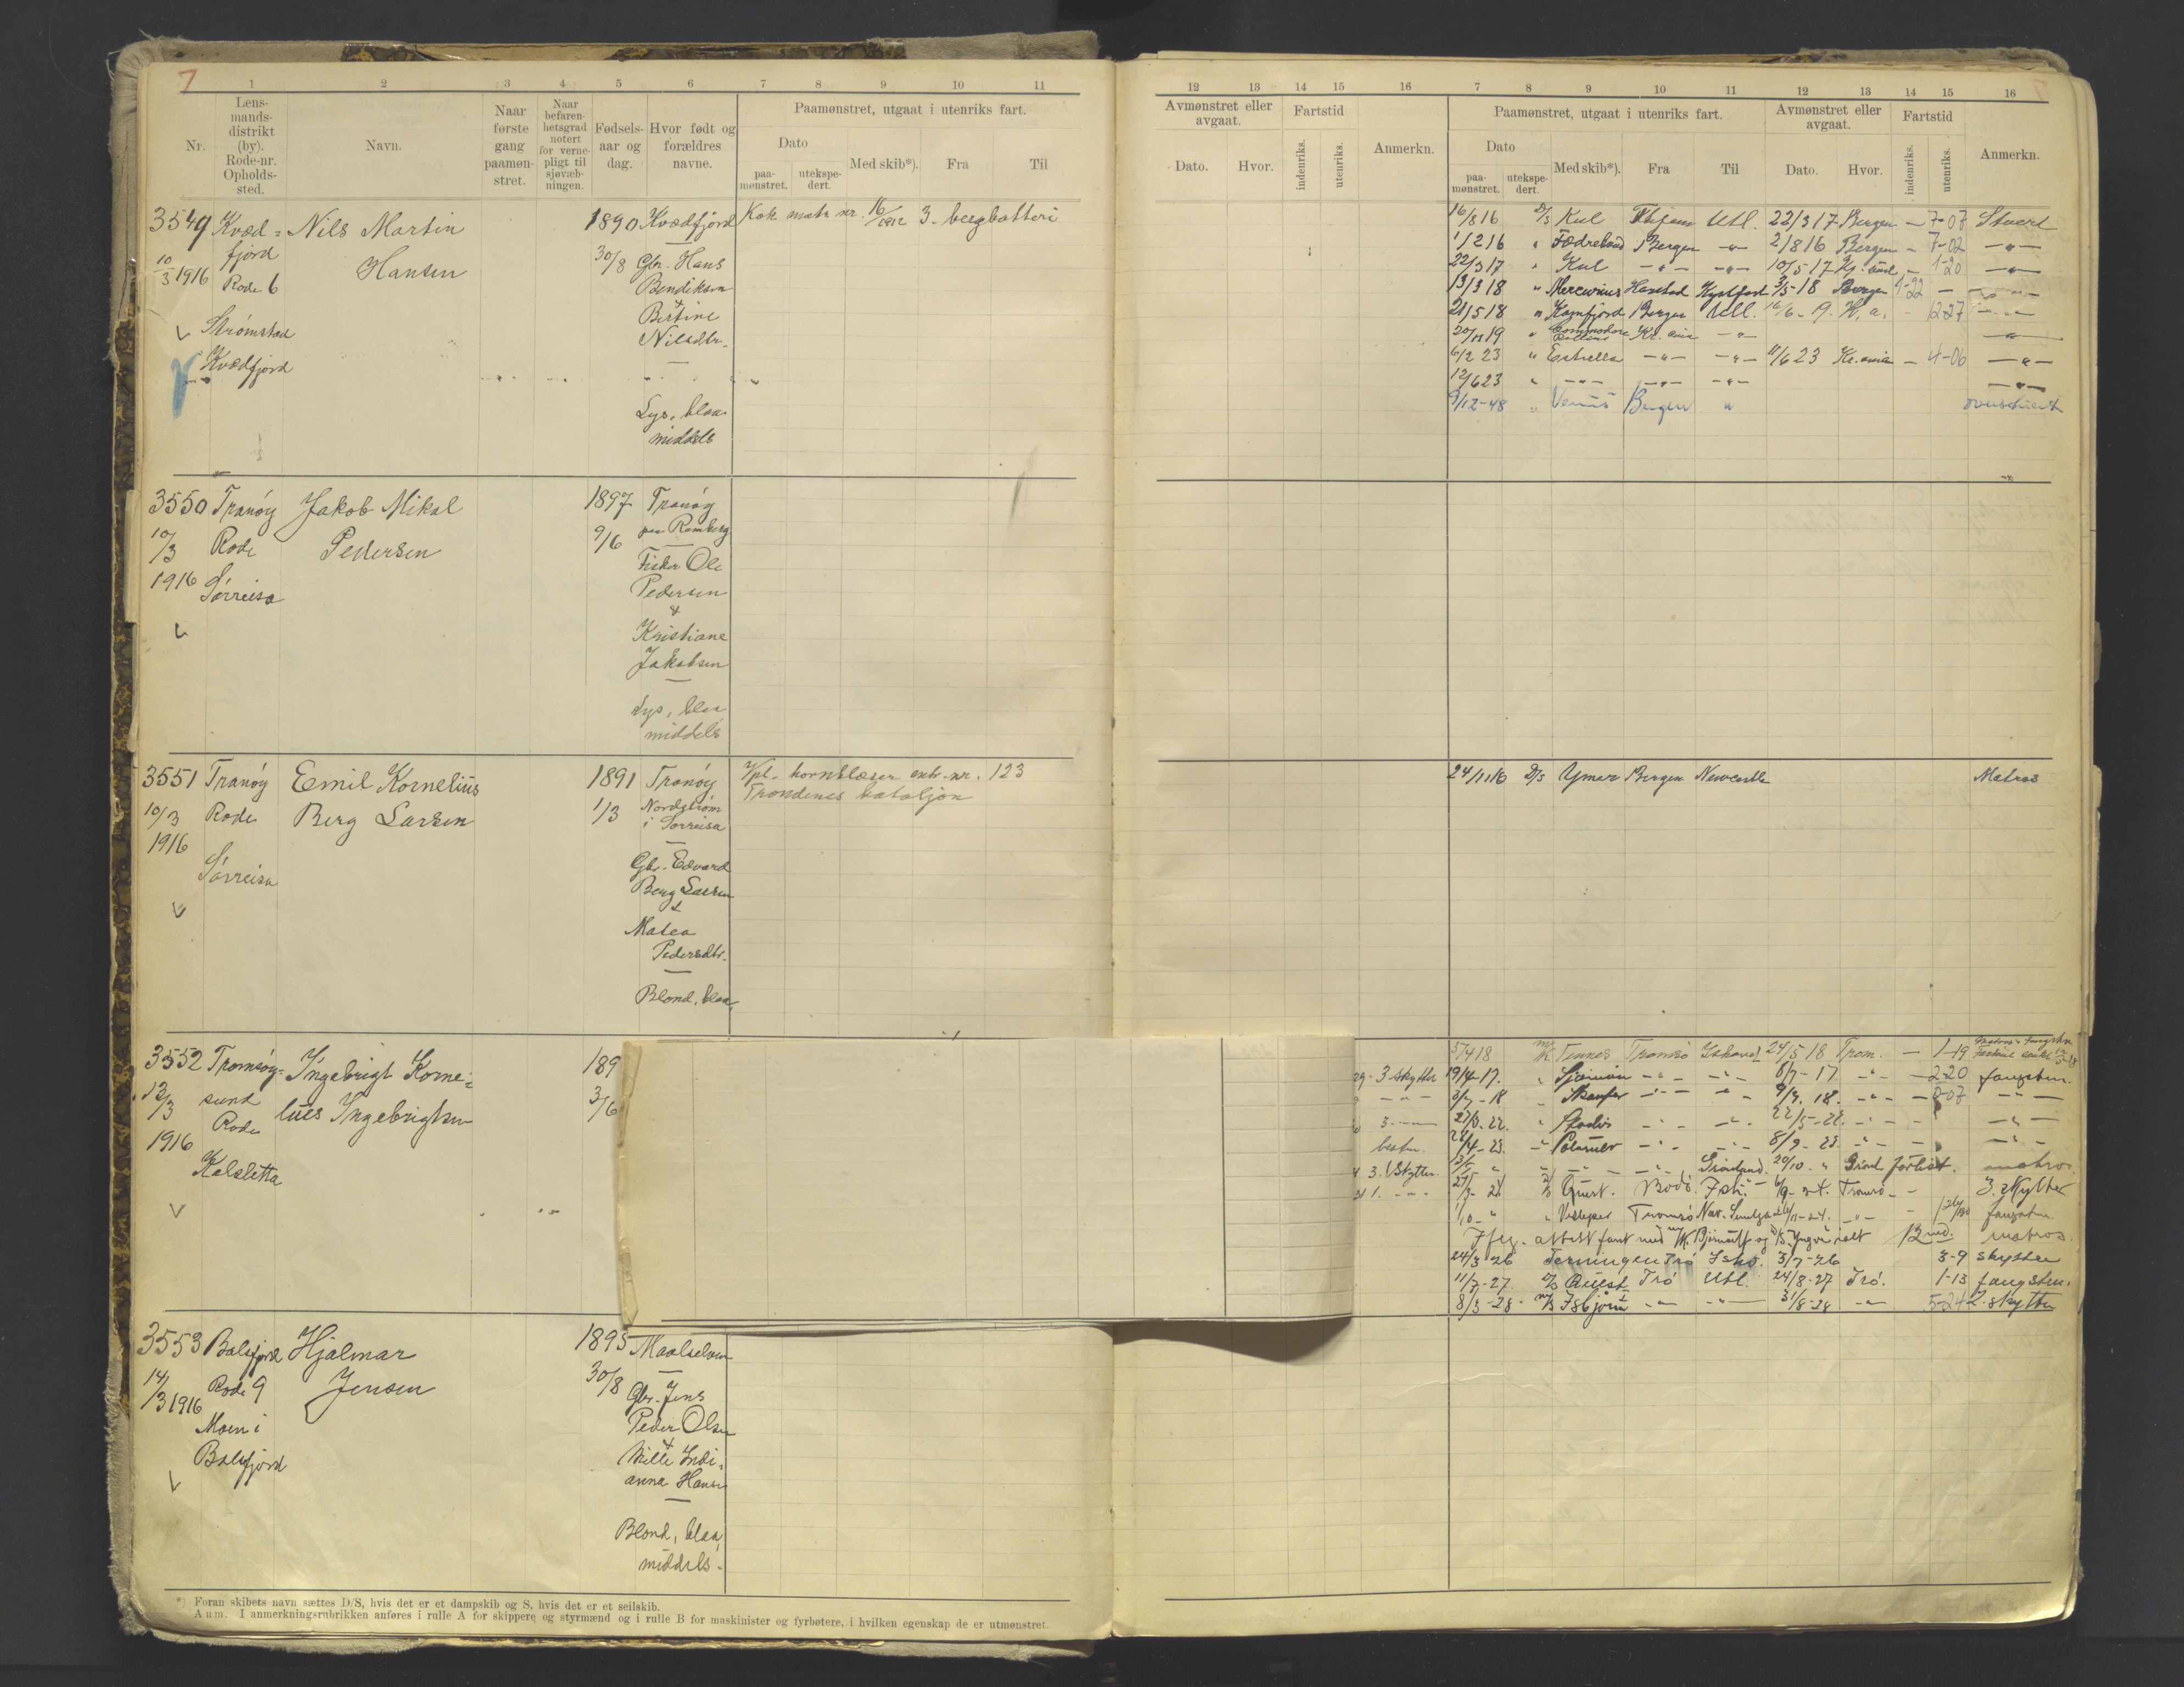 7
1 2 3 4 5 6 7 8 9 10 11
Nr.
Lens-
mands-
distrikt
(by).
Rode-nr.
Opholds-
sted.
Navn.
Naar
første
gang
paamøn-
stret.
Naar
befaren-
hetsgrad
notert
for verne-
pligt til
sjøvæb-
ningen.
Fødsels-
aar og
dag.
Hvor født og
forældres
navne.
Paamønstret, utgaat i utenriks fart.
Dato
paa-
mønstret.
utekspe-
dert.
Med skib*).
Fra
Til
3549 Kvæd= Nils Martin 1890 Kvædfjord Kok matr nr. 16/1912 3. bergbatteri
fjord Hansen 30/8 Gbr. Hans
10/3 1916 Rode 6 Bendiksen
&
Strømstad Bertine
Kvædfjord Nilsdtr.
Lys, blaa
middels
3550 Tranøy Jakob Mikal 1897 Tranøy
10/3 Rode Pedersen 9/6
1916 Sørreisa Fisker Ole
Pedersen
&
Kristiane
Jakobsen
Lys, blaa
middels
3551 Tranøy Emil Kornelius 1891 Tranøy Vpl. hornblaser nr. 123
10/3 Rode Berg Larsen 1/3 Nordstrøm Trondenes bataljon
1916 i Sørreisa
Sørreisa Gbr. Edvard
Berg Larsen
&
Matea
Pedersdtr.
Blond, blaa
3552 Tromsøy= Ingebrigt Korne= 189
13/3 sund lius Ingebrigtsen 3/6
1916 Rode
Kalsletta
3553 Balsfjord Hjalmar 1895 Maalselven
14/3 1916 Rode 9 Jensen 30/8 Gbr. Jens
Moen i Peder Olsen
Balsfjord &
Mille Indi=
anna Hansen
Blond, blaa
middels
*) Foran skibets navn sættes D/S, hvis det er et dampskib og S, hvis det er et seilskib.
Anm. I anmerkningsrubrikken anføres i rulle A for skippere og styrmænd og i rulle B for maskinister og fyrbøtere, i hvilken egenskap de er utmønstret.
12 13 14 15 16 7 8 9 10 11 12 13 14 15 16
Avmønstret eller
avgaat.
Dato. Hvor.
Fartstid
indenriks.
utenriks.
Anmerkn.
Paamønstret, utgaat i utenriks fart.
Dato
paa-
mønstret.
utekspe-
dert.
Med skib*).
Fra
Til
Avmønstret eller
avgaat.
Dato. Hvor.
Fartstid
indenriks.
utenriks.
Anmerkn.
16/8 16 D/S Kul Thjem Utl. 22/3 17 Bergen — 7-07 Stuert
1/2 16 " Fædreland Bergen —"— 2/8 16 Bergen — 7-02 —"—
22/3 17 " Kul —"— —"— 10/5-17 — 1-20 —"—
13/3 18 " Mercurius Harstad Kystfart 3/5-18 Bergen 1-22 — —"—
21/5 18 " Kornfjord Bergen Utl. — 12-27 —"—
20/11 19 " Commodore Kr. ania —"— —"—
6/2 23 " Estrella —"— —"— 11/6 23 Kr. ania — 4-06 —"—
12/6 23 " —"— —"— —"— —"—
9/12-48 " Venus Bergen "
24/11 16 D/S Ymer Bergen Newcastle Matros
5/4 18 M/K Tromsø Ishavet 24/5 18 Trom. — 1-19
3 skytter 19/4-17. " —"— —"— 8/7-17 —"— 2-20 fangstm.
—"— 3/7-18 " —"— —"— 9/9. 18. —"— —"—
3 —"— 22/3-22. " —"— —"— 22/5-22. —"— —"—
bestm. 22/4-23. —"— —"— 8/9-23. —"— —"—
3. skytter. —"— —"— Grønland. 20/10. " forlist. matros.
1. —"— D/S Quest. Bodø. Ish. 6/9-24. Tromsø — 3. skytter
1/10-" " Vesleper Tromsø —"— fangstm
Iflg. attest fart med M/K Bjørnulf og Yngvar ialt 12 md. matros.
24/3 26 Terningen Trø Ish. 3/7-26 3-9 skytter
11/7-27. D/S Quest Trø Utl. 24/8-27 Trø. 1-13 fangstm.
8/3-28. M/S Isbjørn —"— —"— 31/8-28 —"— 5-24 2. skytter